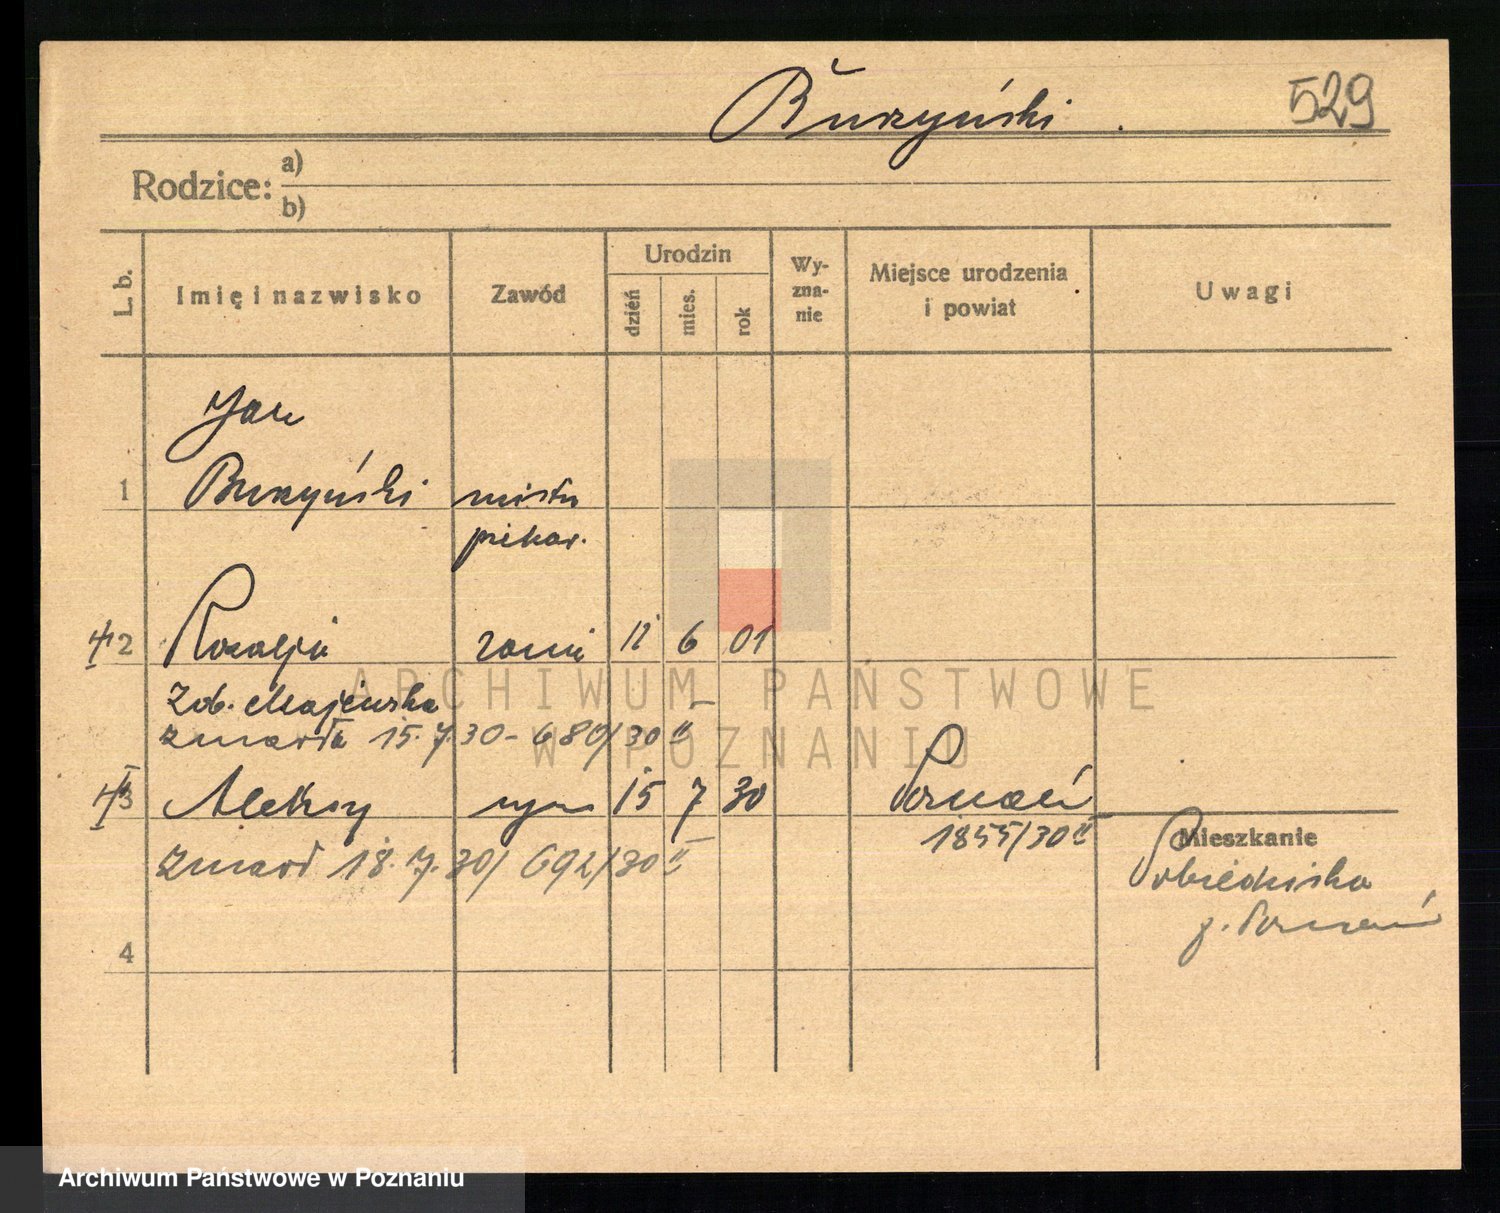 Burzyński.
529
Rodzice:
a)
b)
L. b.
Imię i nazwisko
Zawód
Urodzin
dzień
mies.
rok
Wy-
zna-
nie
Miejsce urodzenia
i powiat
Uwagi
Jan
1 Burzyński mistrz
piekar.
2 Rozalja żona 12 6 01
Zob. Majewska
zmarła 15.7.30 - 680/30 II
3 Aleksy syn 15 7 30 Poznań
1855/30 II
zmarł 18.7.30 / 692/30 II
Mieszkanie
Pobiedziska
p. Poznań
4
ARCHIWUM PAŃSTWOWE
W POZNANIU
Archiwum Państwowe w Poznaniu